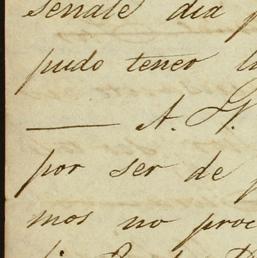 señale dia
pudo tener
— A. H.
por ser de
mos no proc